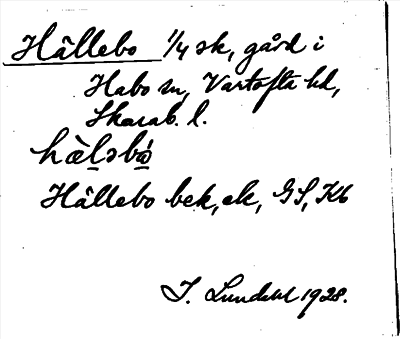 Hållebo 1/4 sk, gård i
Habo sn, Vartofta hd,
Skarab. l.
hàlsbó
Hållebo bek, ek, GS, Kb
I. Lundahl 1928.